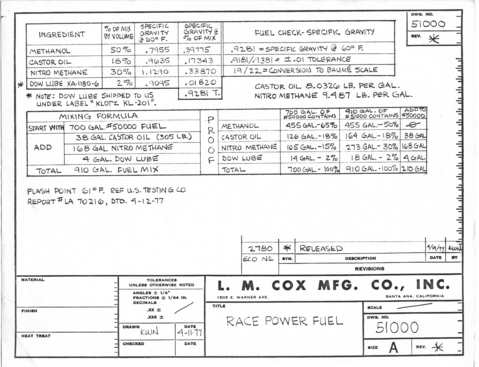 DWG. NO.
51000
REV. *
INGREDIENT % OF MIX BY VOLUME SPECIFIC GRAVITY @ 60° F. SPECIFIC GRAVITY @ % OF MIX
METHANOL 50% .7955 .39775
CASTOR OIL 18% .9635 .17343
NITRO METHANE 30% 1.1290 .33870
* DOW LUBE 2% .9095 .01820
.9281 T.
* NOTE: DOW LUBE SHIPPED TO US
UNDER LABEL "KLOTZ KL-201".
FUEL CHECK-SPECIFIC GRAVITY
.9281 = SPECIFIC GRAVITY @ 60° F.
.9181/.9381 = ±.01 TOLERANCE
19/22 = CONVERSION TO BAUMÉ SCALE
CASTOR OIL 8.0326 LB. PER GAL.
NITRO METHANE 9.487 LB. PER GAL.
MIXING FORMULA
START WITH 700 GAL. #50000 FUEL
ADD
38 GAL. CASTOR OIL (305 LB.)
168 GAL. NITRO METHANE
4 GAL. DOW LUBE
TOTAL 910 GAL. FUEL MIX
PROOF
700 GAL. OF #50000 CONTAINS 910 GAL. OF #51000 CONTAINS ADD TO #50000
METHANOL 455 GAL.-65% 455 GAL.-50% -0-
CASTOR OIL 126 GAL.-18% 164 GAL.-18% 38 GAL
NITRO METHANE 105 GAL.-15% 273 GAL-30% 168 GAL
DOW LUBE 14 GAL - 2% 18 GAL - 2% 4 GAL.
TOTAL 700 GAL.-100% 910 GAL.-100% 210 GAL
FLASH POINT 61° F. REF U.S. TESTING CO
REPORT # LA 70216, DTD. 4-12-77
2780 * RELEASED
ECO NO. SYM. DESCRIPTION DATE BY
REVISIONS
MATERIAL
FINISH
HEAT TREAT
TOLERANCES
UNLESS OTHERWISE NOTED
ANGLES ± 1/4°
FRACTIONS ± 1/64 IN.
DECIMALS
.XX ±
.XXX ±
DRAWN DATE
KUIN 4-11-77
CHECKED DATE
L. M. COX MFG. CO., INC.
1505 E. WARNER AVE. SANTA ANA, CALIFORNIA
TITLE
RACE POWER FUEL
SCALE
DWG. NO.
51000
SIZE A REV. *